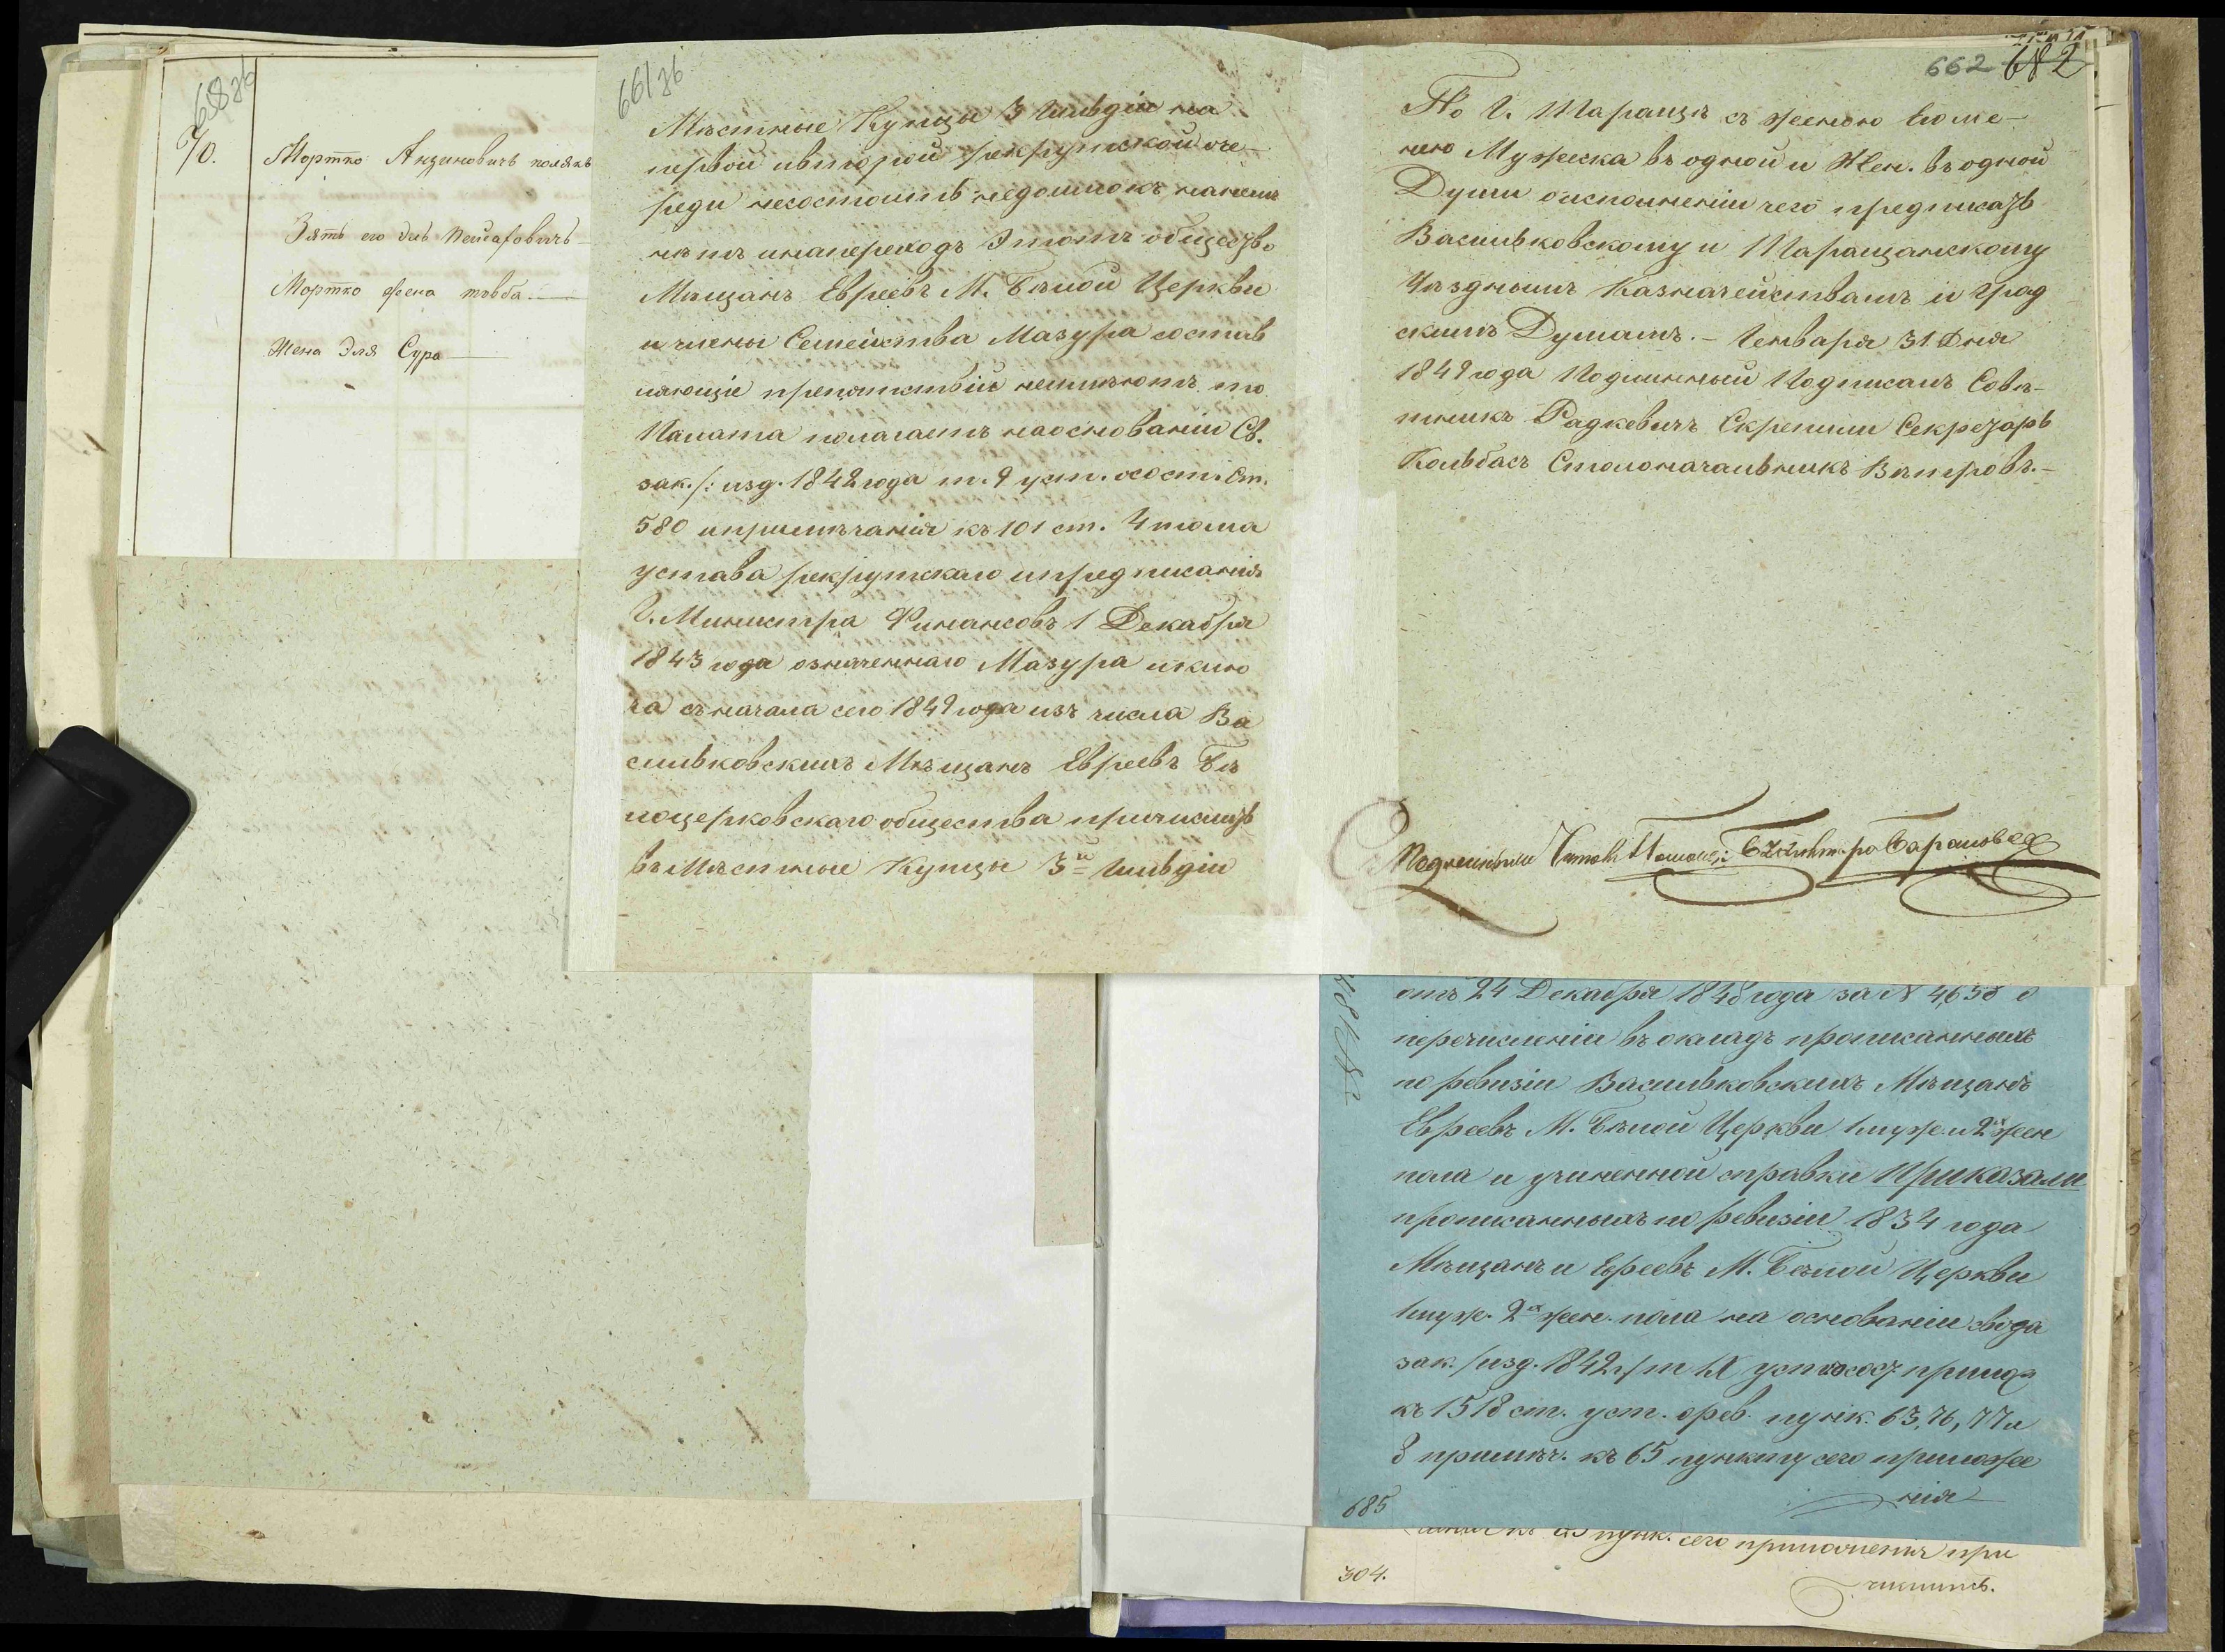 70.
Мортко
Зять его
Мортко жена
Жена Эля Сура
661зв
Мѣстные Купцы 3 Гильдіи на
первой ивторой рекрутской оче-
реди несостоитъ недоимокъ нанемъ
нѣтъ инапереходъ Этотъ общество
Мѣщанъ Евреевъ М. Бѣлой Церкви
и члены Семейства Мазура состав
ляющіе препятствій неимѣютъ то
Палата полагаетъ наоснованіи Св.
зак. /: изд. 1842 года т. 9 уст. осост. Ст.
580 ипримѣчанія къ 101 ст. 4 тома
устава рекрутскаго ипредписанія
Г. Министра Финансовъ 1 Декабря
1843 года означеннаго Мазура исклю
ча съначала сего 1849 года изъ числа Ва
сильковскихъ Мѣщанъ Евреевъ Бѣ
лоцерковскаго общества причислить
въ Мѣстные Купцы 3й Гильдіи
662 682
По Г. Таращѣ съ женою Еоме-
нею Мужеска въ одной и Жен. въ одной
Души оисполненіи чего предписать
Васильковскому и Таращанскому
Уѣзднымъ Казначействамъ и Град
скимъ Думамъ. - Генваря 31 Дня
1849 года Подлинный Подписалъ Совѣ-
тникъ Радкевичъ Скрепили Секретарь
Кольбасъ Столоначальникъ Вѣтровъ. -
отъ 24 Декабря 1848 года за № 4658 о
перечисленіи въ окладъ прописанныхъ
по ревизіи Васильковскихъ Мѣщанъ
Евреевъ М. Бѣлой Церкви 1 муж. и 2х жен
пола и учиненной справки Приказали
прописанныхъ по ревизіи 1834 года
Мѣщанъ и Евреевъ М. Бѣлой Церкви
1 муж. 2х жен. пола на основаніи свода
зак. /изд. 1842 г/ т IX уст осост прилож
къ 1518 ст. уст. орев. пунк. 63, 76, 77 и
8 примѣч. къ 65 пункту сего приложе
685
нія
пунк. сего приложенія при
304.
числить.